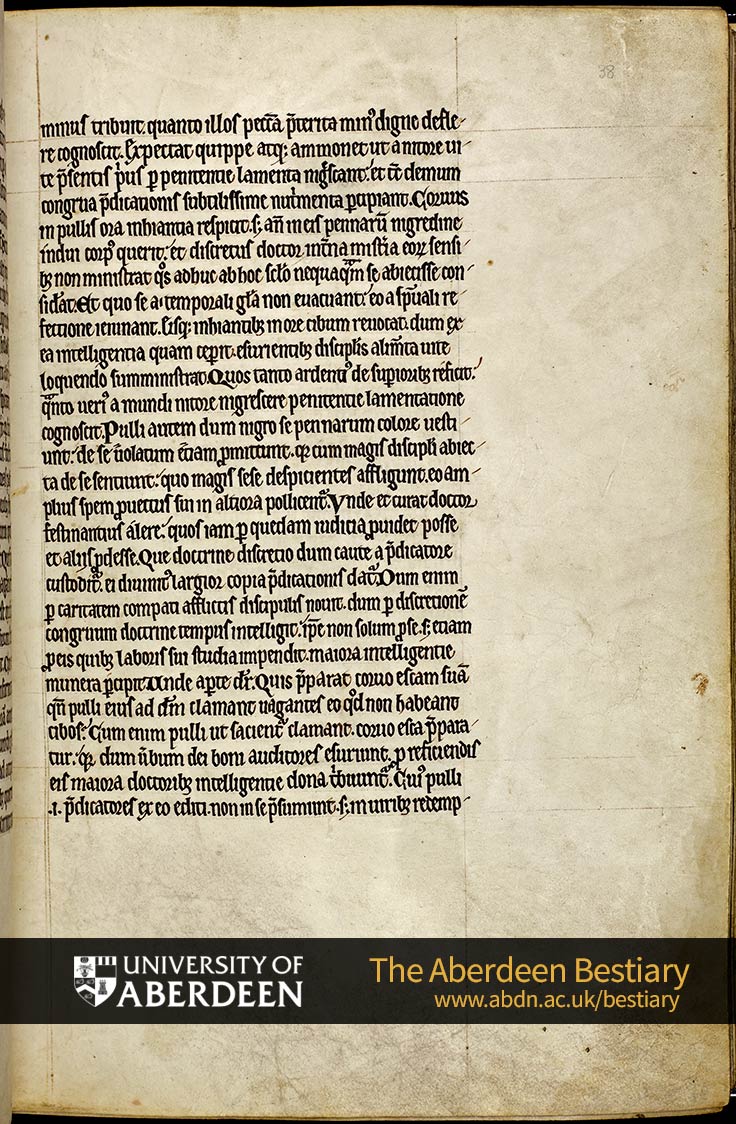 38
minus tribuit. quanto illos peccͣta p̄terita min᾽ digne defle-
re cognoscit. Expectat quippe atq; ammonet ut a nitore ui-
te p̄sentis p̾us ꝑ penitentie lamenta nig̾scant. et tc̄ demum
congrua p̄dicationis subtilissime nut̾menta ꝑcipiant. Coruus
in pullis ora inhiantia respicit. s; an̄ in eis pennarū nigredine
indui corp᾽ querit. et discretus doctor int̾na mist̾ia eoꝝ sensi-
bꝫ non ministrat. q̊s adhuc ab hoc sc̄lo nequaqͣm se abiecisse con-
sid̾at. Et quo se a temporali gl̄a non euacuant. eo a sp̄uali re-
fectione ieiunant. Eisq; inhiantibꝫ in ore cibum reuocat. dum ex
ea intelligentia quam cepit. esurientibꝫ discipl̓is alim̄ta uite
loquendo summinstrat. Quos tanto ardenti᾽ de sup̱ioribꝫ reficit.
qͣnto ueri᾽ a mundi nitore nigrescere penitentie lamentatione
cognoscit. Pulli autem dum nigro se pennarum colore uesti-
unt. de se uolatum eciam ꝓmittunt. q̨ cum magis discipl̓i abiec-
ta de se sentiunt. quo magis sese despicientes affligunt. eo am-
plius spem ꝓuectus sui in altiora pollicent᾽. Vnde et curat doctor
festinantius alere. quos iam ꝑ quedam iudicia ꝓuidet posse
et aliis ꝓdesse. Que doctrine discretio dum caute a p̄dicatore
custodit᾽. ei diuinit᾽ largior copia p̄dicationis dat᾽. Dum enim
ꝑ caritatem compati afflictis discipulis nouit. dum ꝑ discretionē
congruum doctrine tempus intelligit. ip̄e non solum ꝓ se. s; etiam
ꝓ eis quibꝫ laboris sui studia impendit. maiora intelligentie
munera ꝑcipit. Unde apte dr̄. Quis p̄parat coruo escam suā
qn̄ pulli eius ad dm̄ clamant uagantes eo qd̓ non habeant
cibos? Cum enim pulli ut sacient᾽ clamant. coruo esca p̄para-
tur. q̨ dum u̾bum dei boni auditores esuriunt. ꝓ reficiendis
eis maiora doctoribꝫ intelligentie dona t̾buunt᾽. Cui᾽ pulli
.i. p̄dicatores ex eo editi. non in se p̄sumunt. s; in uiribꝫ redemp-
UNIVERSITY OF
ABERDEEN
The Aberdeen Bestiary
www.abdn.ac.uk/bestiary